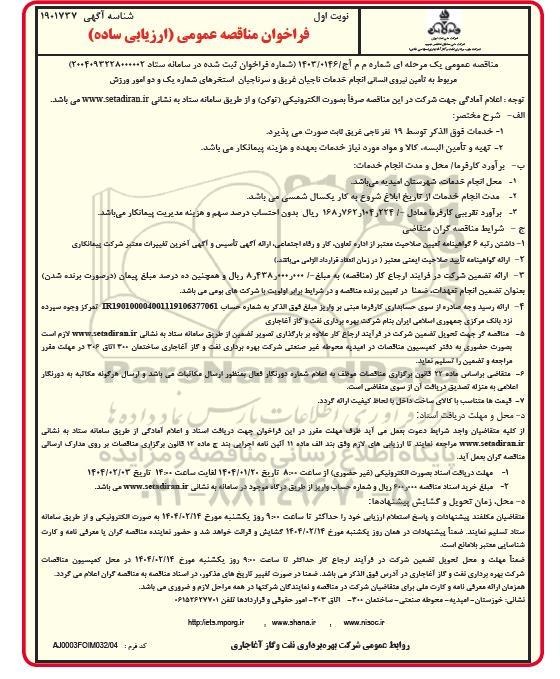 نوبت اول
شناسه آگهی ۱۹۰۱۷۳۷
فراخوان مناقصه عمومی (ارزیابی ساده)
مناقصه عمومی یک مرحله ای شماره م م آج/۱۴۰۳/۰۱۴۶ (شماره فراخوان ثبت شده در سامانه ستاد ۲۰۰۴۰۹۳۲۲۸۰۰۰۰۰۲)
مربوط به تأمین نیروی انسانی انجام خدمات ناجیان غریق و سرناجیان استخرهای شماره یک و دو امور ورزش
توجه : اعلام آمادگی جهت شرکت در این مناقصه صرفاً بصورت الکترونیکی (توکن) و از طریق سامانه ستاد به نشانی www.setadiran.ir می باشد.
الف- شرح مختصر:
۱- خدمات فوق الذکر توسط ۱۹ نفر ناجی غریق ثابت صورت می پذیرد.
۲- تهیه و تأمین البسه، کالا و مواد مورد نیاز خدمات بعهده و هزینه پیمانکار می باشد.
ب- برآورد کارفرما/ محل و مدت انجام خدمات:
۱- محل انجام خدمات، شهرستان امیدیه می‌باشد.
۲- مدت انجام خدمات از تاریخ ابلاغ شروع به کار یکسال شمسی می باشد.
۳- برآورد تقریبی کارفرما معادل -/۱۶۸٫۷۶۲٫۱۰۴٫۲۲۴ ریال بدون احتساب درصد سهم و هزینه مدیریت پیمانکار می‌باشد.
ج - شرایط مناقصه گران متقاضی
۱- داشتن رتبه ۶ گواهینامه تعیین صلاحیت معتبر از اداره تعاون، کار و رفاه اجتماعی، ارائه آگهی تأسیس و آگهی آخرین تغییرات معتبر شرکت پیمانکاری
۲- ارائه گواهینامه تأیید صلاحیت ایمنی معتبر ( در زمان انعقاد قرارداد الزامی می‌باشد.)
۳- ارائه تضمین شرکت در فرآیند ارجاع کار (مناقصه) به مبلغ -/۸٫۴۳۸٫۰۰۰٫۰۰۰ ریال و همچنین ده درصد مبلغ پیمان (درصورت برنده شدن)
بعنوان تضمین انجام تعهدات، ضمنا در تعیین برنده مناقصه و در شرایط برابر اولویت با شرکت های بومی می باشد.
۴- ارائه رسید وجه صادره از سوی حسابداری کارفرما مبنی بر واریز مبلغ فوق الذکر به شماره حساب IR190100004001119106377061 تمرکز وجوه سپرده
نزد بانک مرکزی جمهوری اسلامی ایران بنام شرکت بهره برداری نفت و گاز آغاجاری
۵- مناقصه گر جهت تحویل تضمین شرکت در فرآیند ارجاع کار علاوه بر بارگذاری تصویر تضمین از طریق سامانه ستاد به نشانی www.setadiran.ir لازم است
بصورت حضوری به دفتر کمیسیون مناقصات در امیدیه محوطه غیر صنعتی شرکت بهره برداری نفت و گاز آغاجاری ساختمان ۳۰۰ اتاق ۳۰۶ در مهلت مقرر
مراجعه و تضمین را تسلیم نماید.
۶- متقاضی براساس ماده ۲۲ قانون برگزاری مناقصات موظف به اعلام شماره دورنگار فعال بمنظور ارسال مکاتبات می باشد و ارسال هرگونه مکاتبه به دورنگار
اعلامی به منزله تصدیق دریافت آن از سوی متقاضی است.
۷- قیمت ها متناسب با کالای ساخت داخل با لحاظ کیفیت ارائه گردد.
د- محل و مهلت دریافت اسناد:
از کلیه متقاضیان واجد شرایط دعوت بعمل می آید ظرف مهلت مقرر در این فراخوان جهت دریافت اسناد و اعلام آمادگی از طریق سامانه ستاد به نشانی
www.setadiran.ir مراجعه نمایند تا ارزیابی های لازم وفق بند الف ماده ۱۱ آئین نامه اجرایی بند ج ماده ۱۲ قانون برگزاری مناقصات بر روی مدارک ارسالی
مناقصه گران بعمل آید.
۱- مهلت دریافت اسناد بصورت الکترونیکی (غیر حضوری) از ساعت ۸:۰۰ تاریخ ۱۴۰۴/۰۱/۲۰ لغایت ساعت ۱۴:۰۰ تاریخ ۱۴۰۴/۰۲/۰۳
۲- مبلغ خرید اسناد مناقصه ۶۰۰٫۰۰۰ ریال و شماره حساب واریز از طریق درگاه موجود در سامانه به نشانی www.setadiran.ir می باشد.
ه- محل، زمان تحویل و گشایش پیشنهادها:
متقاضیان مکلفند پیشنهادات و پاسخ استعلام ارزیابی خود را حداکثر تا ساعت ۹:۰۰ روز یکشنبه مورخ ۱۴۰۴/۰۲/۱۴ به صورت الکترونیکی و از طریق سامانه
ستاد تسلیم نمایند. ضمناً پیشنهادات در همان روز یکشنبه مورخ ۱۴۰۴/۰۲/۱۴ گشایش و قرائت خواهد شد و حضور نماینده مناقصه گران با معرفی نامه و کارت
شناسایی معتبر بلامانع است.
ضمناً مهلت و محل تحویل تضمین شرکت در فرآیند ارجاع کار حداکثر تا ساعت ۹:۰۰ روز یکشنبه مورخ ۱۴۰۴/۰۲/۱۴ در محل کمیسیون مناقصات
شرکت بهره برداری نفت و گاز آغاجاری در آدرس فوق الذکر می باشد. ضمنا در صورت تغییر تاریخ های مذکور، در اسناد مناقصه به مناقصه گران اعلام می گردد.
همزمان ارائه معرفی نامه و کارت ملی برای متقاضیان شرکت در مناقصه و نمایندگان شرکتها در همه مراحل لازم و ضروری می باشد.
نشانی: خوزستان- امیدیه- محوطه صنعتی- ساختمان ۳۰۰- اتاق ۳۰۳- امور حقوقی و قراردادها تلفن ۰۶۱۵۲۶۲۷۷۰۱
http://iets.mporg.ir , www.shana.ir , www.nisoc.ir
روابط عمومی شرکت بهره‌برداری نفت و گاز آغاجاری
کد فرم : AJ0003FOIM032/04